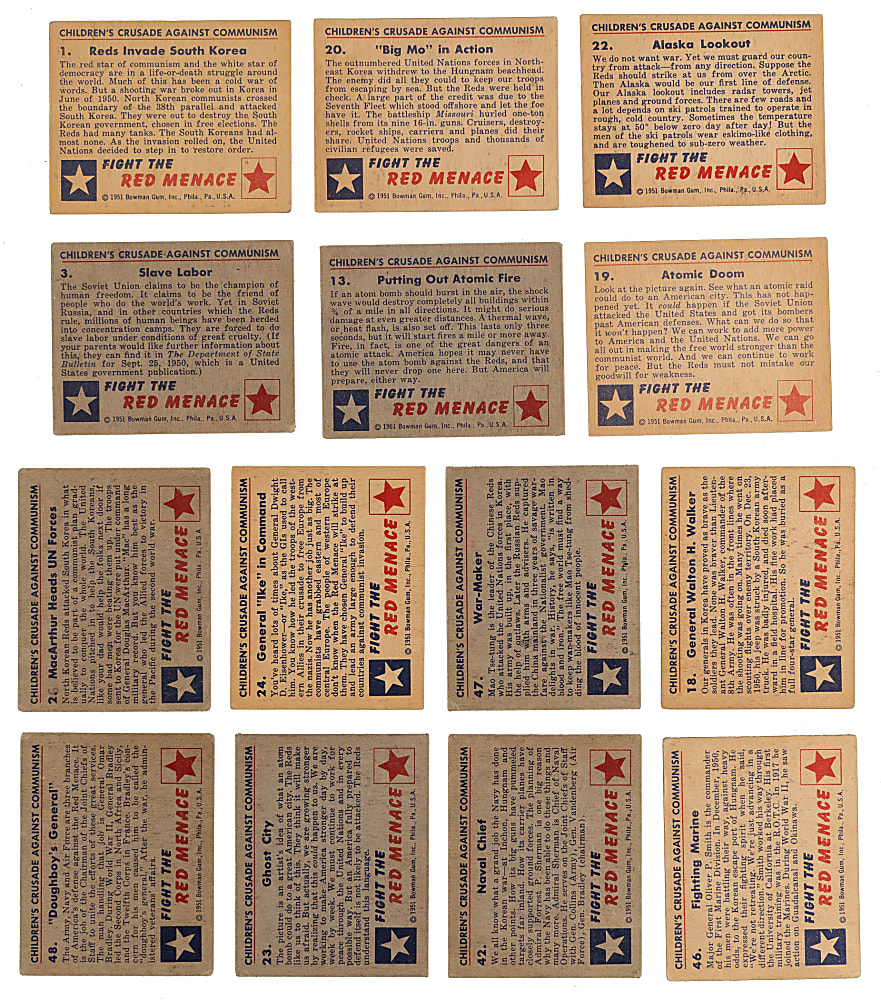 CHILDREN'S CRUSADE AGAINST COMMUNISM
1. Reds Invade South Korea
The red star of communism and the white star of
democracy are in a life-or-death struggle around
the world. Much of this has been a cold war of
words. But a shooting war broke out in Korea in
June of 1950. North Korean communists crossed
the boundary of the 38th parallel and attacked
South Korea. They were out to destroy the South
Korean government, chosen in free elections. The
Reds had many tanks. The South Koreans had al-
most none. As the invasion rolled on, the United
Nations decided to step in to restore order.
FIGHT THE
RED MENACE
© 1951 Bowman Gum, Inc., Phila., Pa., U.S.A.
CHILDREN'S CRUSADE AGAINST COMMUNISM
20. "Big Mo" in Action
The outnumbered United Nations forces in North-
east Korea withdrew to the Hungnam beachhead.
The enemy did all they could to keep our troops
from escaping by sea. But the Reds were held in
check. A large part of the credit was due to the
Seventh Fleet which stood offshore and let the foe
have it. The battleship Missouri hurled one-ton
shells from its nine 16-in. guns. Cruisers, destroy-
ers, rocket ships, carriers and planes did their
share. United Nations troops and thousands of
civilian refugees were saved.
FIGHT THE
RED MENACE
© 1951 Bowman Gum, Inc., Phila., Pa., U.S.A.
CHILDREN'S CRUSADE AGAINST COMMUNISM
22. Alaska Lookout
We do not want war. Yet we must guard our coun-
try from attack—from any direction. Suppose the
Reds should strike at us from over the Arctic.
Then Alaska would be our first line of defense.
Our Alaska lookout includes radar towers, jet
planes and ground forces. There are few roads and
a lot depends on ski patrols trained to operate in
rough, cold country. Sometimes the temperature
stays at 50° below zero day after day! But the
men of the ski patrols wear eskimo-like clothing,
and are toughened to sub-zero weather.
FIGHT THE
RED MENACE
© 1951 Bowman Gum, Inc., Phila., Pa., U.S.A.
CHILDREN'S CRUSADE AGAINST COMMUNISM
3. Slave Labor
The Soviet Union claims to be the champion of
human freedom. It claims to be the friend of
people who do the world's work. Yet in Soviet
Russia, and in other countries which the Reds
rule, millions of human beings have been herded
into concentration camps. They are forced to do
slave labor under conditions of great cruelty. (If
your parents would like further information about
this, they can find it in The Department of State
Bulletin for Sept. 25, 1950, which is a United
States government publication.)
FIGHT THE
RED MENACE
© 1951 Bowman Gum, Inc., Phila., Pa., U.S.A.
CHILDREN'S CRUSADE AGAINST COMMUNISM
13. Putting Out Atomic Fire
If an atom bomb should burst in the air, the shock
wave would destroy completely all buildings within
¾ of a mile in all directions. It might do serious
damage at even greater distances. A thermal wave,
or heat flash, is also set off. This lasts only three
seconds, but it will start fires a mile or more away.
Fire, in fact, is one of the great dangers of an
atomic attack. America hopes it may never have
to use the atom bomb against the Reds, and that
they will never drop one here. But America will
prepare, either way.
FIGHT THE
RED MENACE
© 1951 Bowman Gum, Inc., Phila., Pa., U.S.A.
CHILDREN'S CRUSADE AGAINST COMMUNISM
19. Atomic Doom
Look at the picture again. See what an atomic raid
could do to an American city. This has not hap-
pened yet. It could happen if the Soviet Union
attacked the United States and got its bombers
past American defenses. What can we do so that
it won't happen? We can work to add more power
to America and the United Nations. We can go
all out in making the free world stronger than the
communist world. And we can continue to work
for peace. But the Reds must not mistake our
goodwill for weakness.
FIGHT THE
RED MENACE
© 1951 Bowman Gum, Inc., Phila., Pa., U.S.A.
CHILDREN'S CRUSADE AGAINST COMMUNISM
2. MacArthur Heads UN Forces
North Korean Reds attacked South Korea in what
is believed to be part of a communist plan grad-
ually to conquer the whole world. The United
Nations pitched in to help the South Koreans,
like your dad would help the folks next door if
some bad men were beating them up. The troops
sent to Korea for the UN were put in the command
of General Douglas MacArthur. "Mac" has a long
military record. But you know him best as the
general who led the Allied forces to victory in
the Pacific during the second world war.
FIGHT THE
RED MENACE
© 1951 Bowman Gum, Inc., Phila., Pa., U.S.A.
CHILDREN'S CRUSADE AGAINST COMMUNISM
24. General "Ike" in Command
You've heard lots of times about General Dwight
D. Eisenhower—or "Ike," as the GIs used to call
him. You know how he led the troops of the west-
ern Allies in their crusade to free Europe from
the Nazis. Now he has another job just as big. The
communists have grabbed eastern and most of
central Europe. The people of western Europe
don't know when the Red Menace will strike at
them. They have chosen General "Ike" to build up
and lead an army large enough to defend their
countries against communist invasion.
FIGHT THE
RED MENACE
© 1951 Bowman Gum, Inc., Phila., Pa., U.S.A.
CHILDREN'S CRUSADE AGAINST COMMUNISM
47. War-Maker
Mao Tse-tung is the leader of the Chinese Reds
who attacked the United Nations forces in Korea.
His army was built up, in the first place, with
the help of outlaws. Later the Russian Reds sup-
plied him with arms and advisers. He captured
the China mainland after years of savage war-
fare against the Nationalist government. Mao
delights in war. History, he says, "is written in
blood and iron." The free world must find a way
to keep war-makers like Mao Tse-tung from shed-
ding the blood of innocent people.
FIGHT THE
RED MENACE
© 1951 Bowman Gum, Inc., Phila., Pa., U.S.A.
CHILDREN'S CRUSADE AGAINST COMMUNISM
18. General Walton H. Walker
Our generals have proved themselves as brave as the
soldiers they lead. None was braver than Lieuten-
ant General Walton H. Walker, commander of the
8th Army. He was often in the front lines where
the shooting was going on. Many times he went on
scouting flights over enemy territory. On Dec. 23,
1950, his jeep was struck by a South Korean army
truck. He was badly injured, and died soon after-
ward in a field hospital. His fine work had placed
him in line for promotion. So he was buried as a
full four-star general.
FIGHT THE
RED MENACE
© 1951 Bowman Gum, Inc., Phila., Pa., U.S.A.
CHILDREN'S CRUSADE AGAINST COMMUNISM
48. "Doughboy's General"
The Army, Navy and Air Force are three branches
of America's defense against the Red Menace. It
is the job of the Chairman of the Joint Chiefs of
Staff to unite the efforts of these great services.
The man holding that job is General Omar
Bradley. During World War II, General Bradley
led the Second Corps in North Africa and Sicily,
and the 12th Army Group in France. Bradley's con-
cern for his men caused him to be called the
"doughboy's general." After the war, he admin-
istered veterans' affairs.
FIGHT THE
RED MENACE
© 1951 Bowman Gum, Inc., Phila., Pa., U.S.A.
CHILDREN'S CRUSADE AGAINST COMMUNISM
23 Ghost City
The picture is an artist's idea of what an atom
bomb could do to a great American city. The Reds
like us to think of this. They think it will make
us afraid. But actually, we are growing stronger
by realizing that this could happen to us. We are
working to make America stronger day by day,
week by week. We must continue to work for
peace through the United Nations and in every
possible way. But an America fully prepared to
defend itself is not likely to be attacked. The Reds
understand this language.
FIGHT THE
RED MENACE
© 1951 Bowman Gum, Inc., Phila., Pa., U.S.A.
CHILDREN'S CRUSADE AGAINST COMMUNISM
42. Naval Chief
We all know what a grand job the Navy has done
in the Korean war—at Inchon, Hungnam and
other points. How its big guns have pummeled
targets far inland. How its carrier planes have
closely supported ground forces. The planning of
Admiral Forrest P. Sherman is one big reason
why the Navy has been able to do these things and
many more. Admiral Sherman is Chief of Naval
Operations. He serves on the Joint Chiefs of Staff
with Gen. Collins (Army), Gen. Vandenberg (Air
Force), Gen. Bradley (chairman).
FIGHT THE
RED MENACE
© 1951 Bowman Gum, Inc., Phila., Pa., U.S.A.
CHILDREN'S CRUSADE AGAINST COMMUNISM
46. Fighting Marine
Major General Oliver P. Smith is the commander
of the First Marine Division. In December, 1950,
his men were battling their way against heavy
odds, to the Korean escape port of Hungnam. He
expressed their fighting spirit when he said:
"We're not retreating. We're just advancing in a
different direction." Smith worked his way through
the University of California at Berkeley. His first
military training was in the R.O.T.C. In 1917 he
joined the Marines. During World War II, he saw
action on Guadalcanal and Okinawa.
FIGHT THE
RED MENACE
© 1951 Bowman Gum, Inc., Phila., Pa., U.S.A.